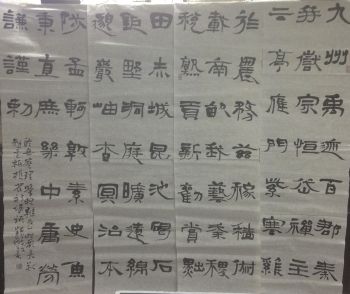 九州禹迹百郡秦
并嶽宗恒岱禪主
云亭雁門紫塞雞
於農務茲稼穡俶
載南畝我藝黍稷
稅熟貢新勸賞黜
田赤城昆池碣石
鉅野洞庭曠遠綿
邈巖岫杳冥治本
陟孟軻敦素史魚
秉直庶幾中庸勞
謙謹勑